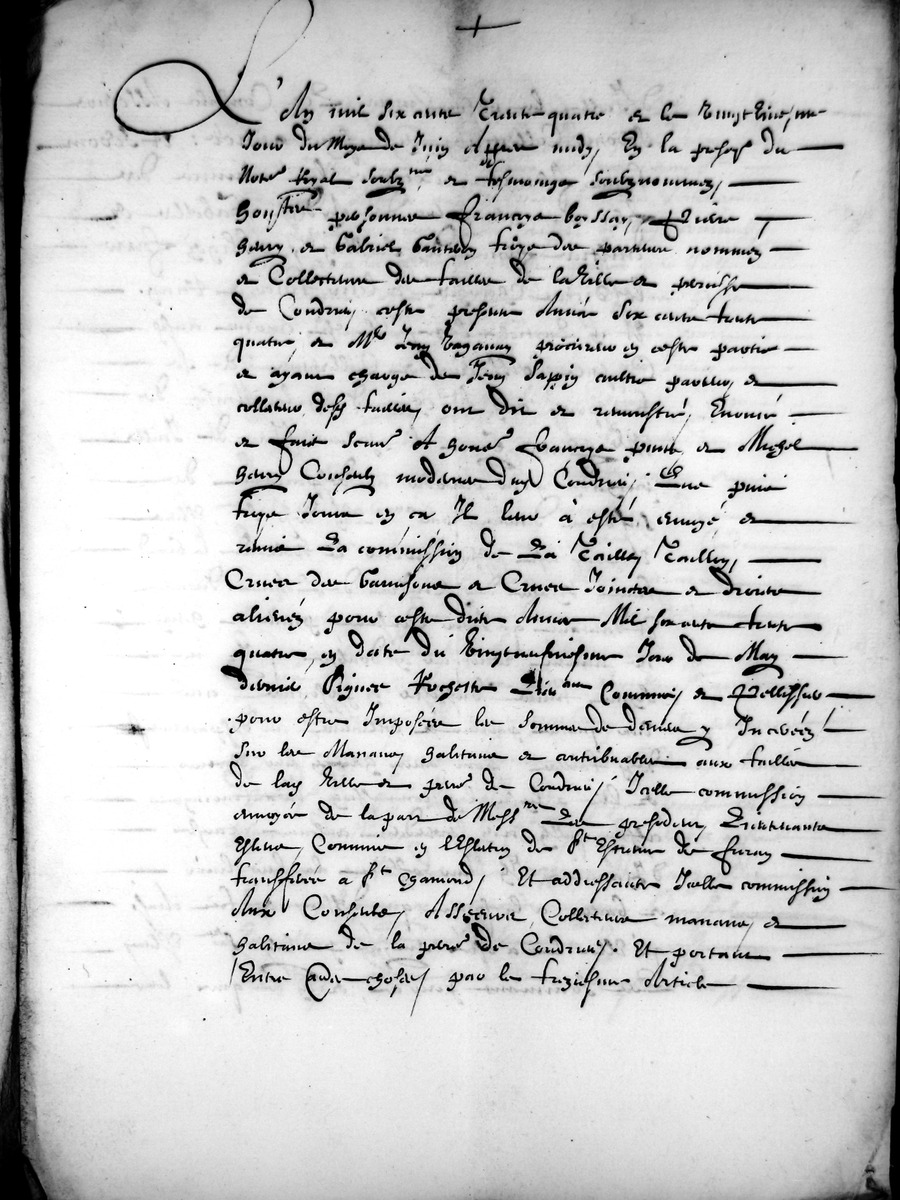 L'An mil six cents Trente quatre et le vingtiesme
Jour du Moys de Juin Apres midy, En la presence du
Notere Royal soubzne, et tesmoings soubznommez,
personnes Françoys boyssat, Pierre
hery, et Gabriel troys des partiers nommez
et Collecteurs des tailles de la Ville et parroisse
de Condrieu ceste presente Année Six cents trente
quatre, et Me Jean procureur en ceste partie
et ayant charge de Jean Sapin aultre partier, et
collecteur desd tailles, ont dit et remonstré,
et faict scavoir A honer Françoys et Michel
hery Consulz modernes dud Condrieu, Que puis
troys Jours en ca Il leur à esté envoyé, et
remis La commission de La Taille, Taillon,
Creues des Garnisons et Creues Joinctes et droicts
alienez pour ceste dite Année Mil six cents trente
quatre, en date du Vingtneufviesme Jour de May
dernier Signee Rochette Commis, et Pellissier
pour estre Imposées les sommes de deniers y Incerées
sur les Manans, habitans et contribuables aux tailles
de lad Ville et parre de Condrieu, Icelle commission
envoyée de la part de Messrs Les presidens, Lieutenants
Esleus, Commis en l'Eslection de St Estienne de Furan
transferée a St Chamond, Et addressante Icelle commission
Aux Consulz, Asseeurs, Collecteurs manans, et
habitans de la parre de Condrieu. Et portant
Entre aues choses, par le treziesme Article